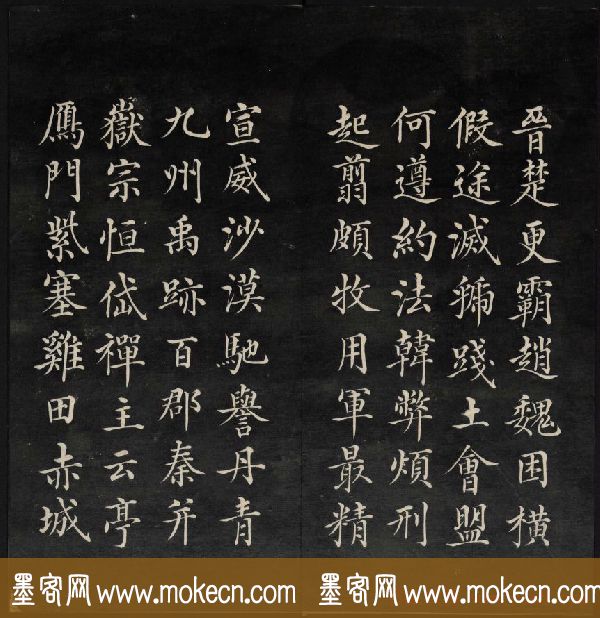 晉楚更霸趙魏困橫
假途滅虢踐土會盟
何遵約法韓弊煩刑
起翦頗牧用軍最精
宣威沙漠馳譽丹青
九州禹跡百郡秦并
嶽宗恒岱禪主云亭
鴈門紫塞雞田赤城
墨客网 www.mokecn.com 墨客网 www.mokecn.com